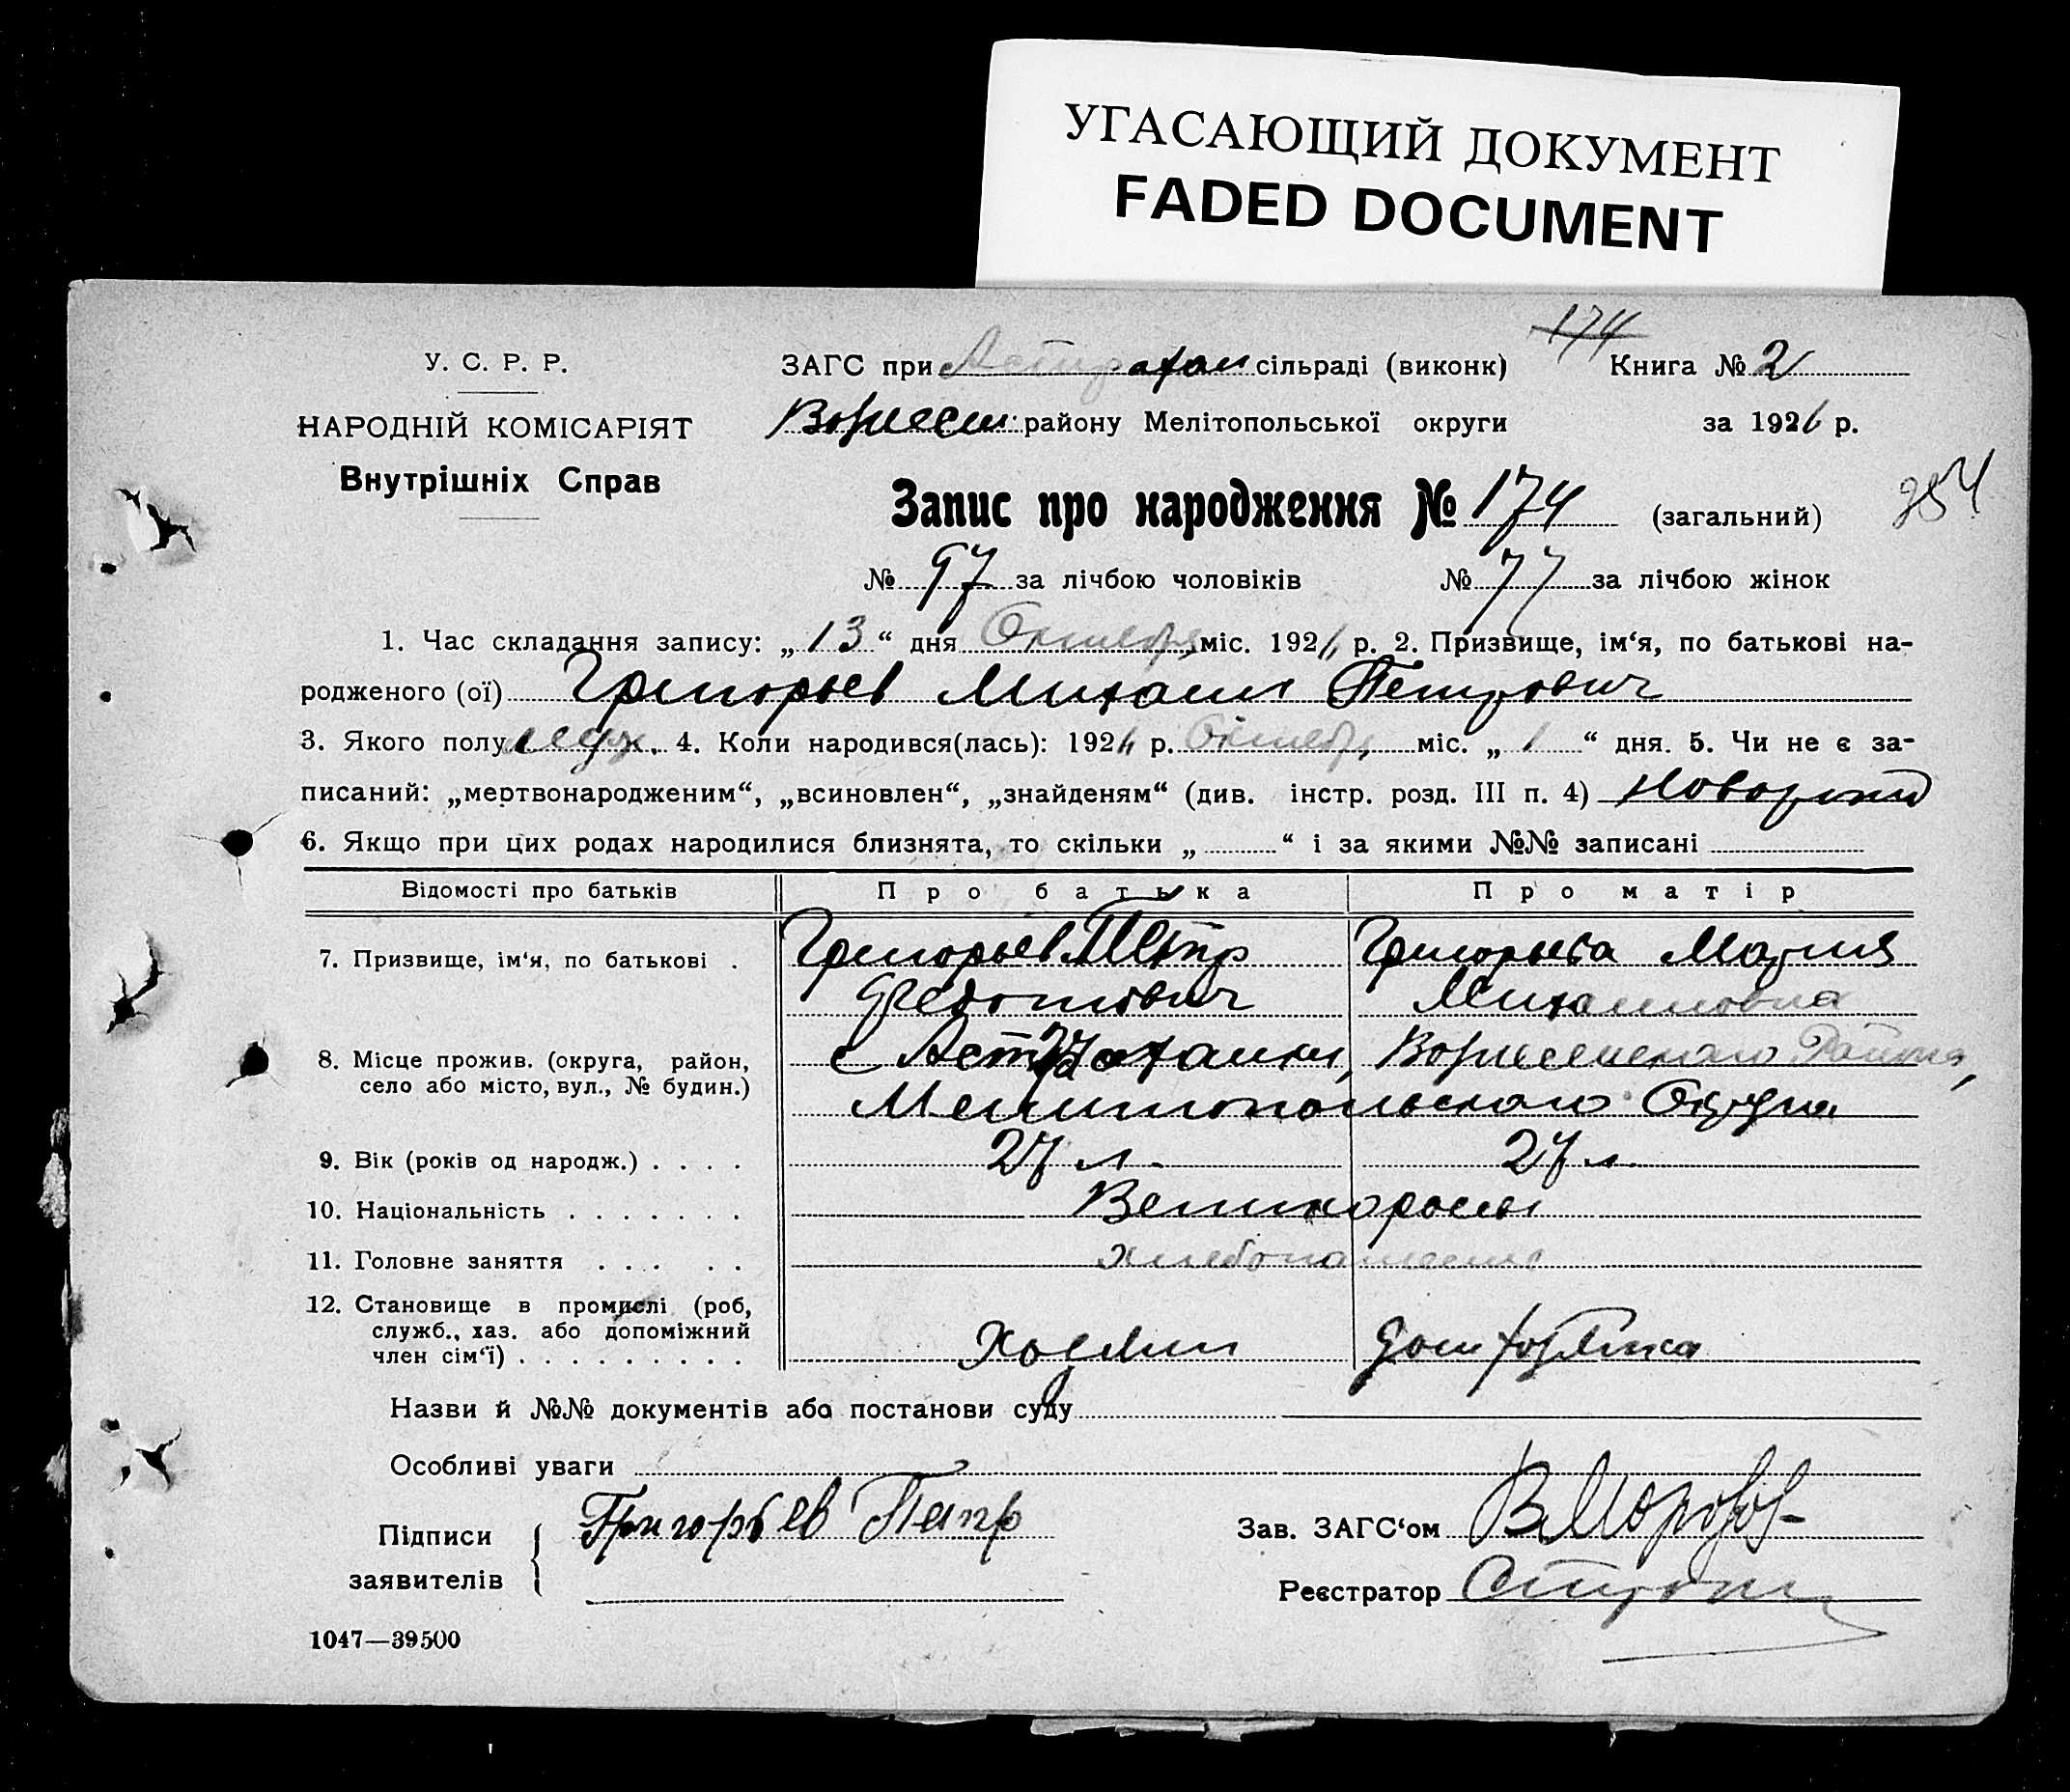 УГАСАЮЩИЙ ДОКУМЕНТ
FADED DOCUMENT
174
У. С. Р. Р.
ЗАГС при Астрахан сільраді (виконк) Книга № 2
НАРОДНІЙ КОМІСАРІЯТ
Внутрішніх Справ
Вознесен. району Мелітопольської округи за 1926 р.
Запис про народження № 174 (загальний)
354
№ 97 за лічбою чоловіків № 77 за лічбою жінок
1. Час складання запису: „13“ дня Октября міс. 1926 р. 2. Призвище, ім‘я, по батькові на-
родженого (ої) Григорьев Михаил Петрович
3. Якого полу муж. 4. Коли народився(лась): 1926 р. Октября міс. „1“ дня. 5. Чи не є за-
писаний: „мертвонародженим“, „всиновлен“, „знайденям“ (див. інстр. розд. III п. 4)
6. Якщо при цих родах народилися близнята, то скільки „ “ і за якими №№ записані
Відомості про батьків Про батька Про матір
7. Призвище, ім‘я, по батькові . Григорьев Петр Григорьева Мария
Федотович Михаиловна
8. Місце прожив. (округа, район,
село або місто, вул., № будин.)
с Астраханки, Вознесенского Района,
Мелитопольского Округа
9. Вік (років од народж.) . . . . 27 л. 27 л.
10. Національність . . . . . . . Великороссы
11. Головне заняття . . . . . хлебопашество
12. Становище в промислі (роб,
служб., хаз. або допоміжний
член сім‘ї) . . . . . . . . . Хозяин Домхозяйка
Назви й №№ документів або постанови суду
Особливі уваги
Підписи
заявителів
Григорьев Петр
Зав. ЗАГС‘ом В Морозов
Реєстратор
1047—39500